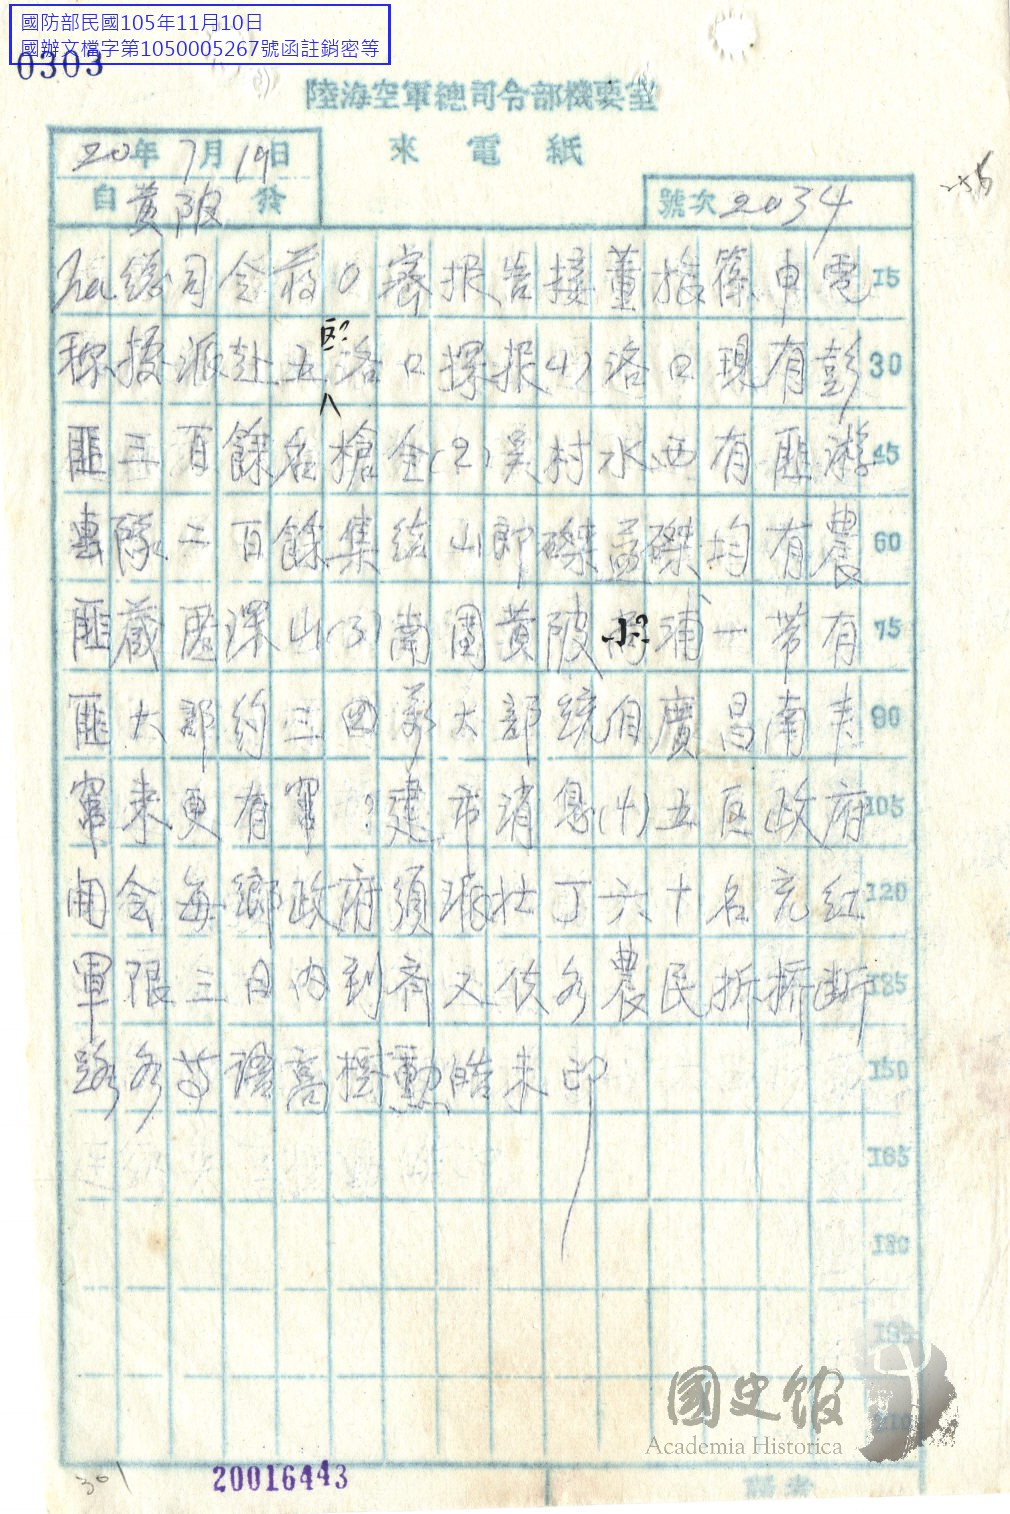 國防部民國105年11月10日
國辦文檔字第1050005267號函註銷密等
0303
陸海空軍總司令部機要室
來電紙
20年7月19日
自黃陂發
號次2034
總司令蔣 密報告接董旅篠申電 15
稱據派赴五洛口探报(1)洛口現有彭 30
区?
匪三百餘名槍全(2)吴村水西有匪游 45
隊二百餘集 山郎磔益磔均有農 60
匪藏匿深山(3)南團黄陂 浦一带有 75
小?
匪大部約三四万大部繞自廣昌南丰 90
竄来更有窜?建市消息(4)五区政府 105
開会每鄉政府須派壮丁六十名充红 120
軍限三日内到齊又伕各農民拆橋断 135
路各等語高樹勳皓未印 150
165
180
195
210
國史館
Academia Historica
301
20016443